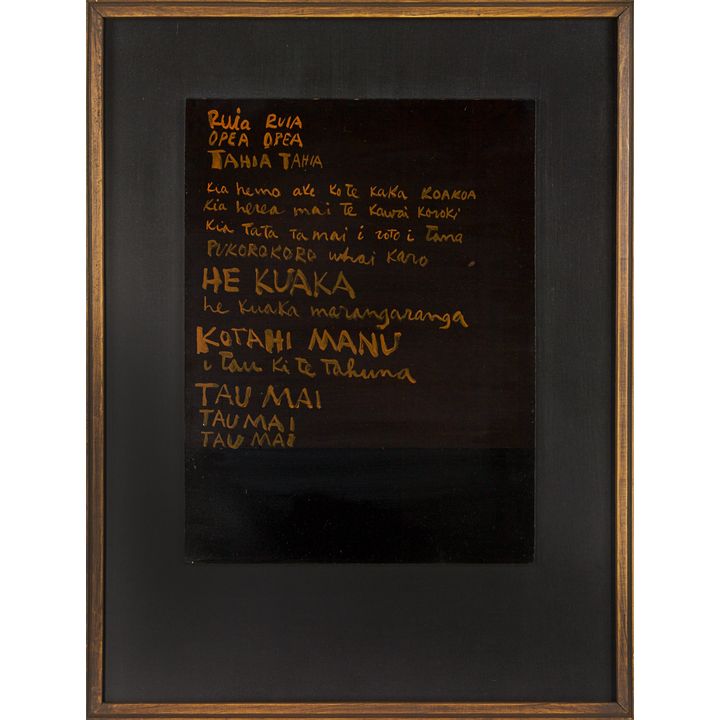 Ruia RUIA
OPEA OPEA
TAHIA TAHIA
kia hemo ake ko te kaka KOAKOA
kia herea mai te kawai koroki
kia tata ta mai i roto i tana
PUKOROKORO whai karo
HE KUAKA
he kuaka marangaranga
KOTAHI MANU
i tau ki te tahuna
TAU MAI
TAU MAI
TAU MAI